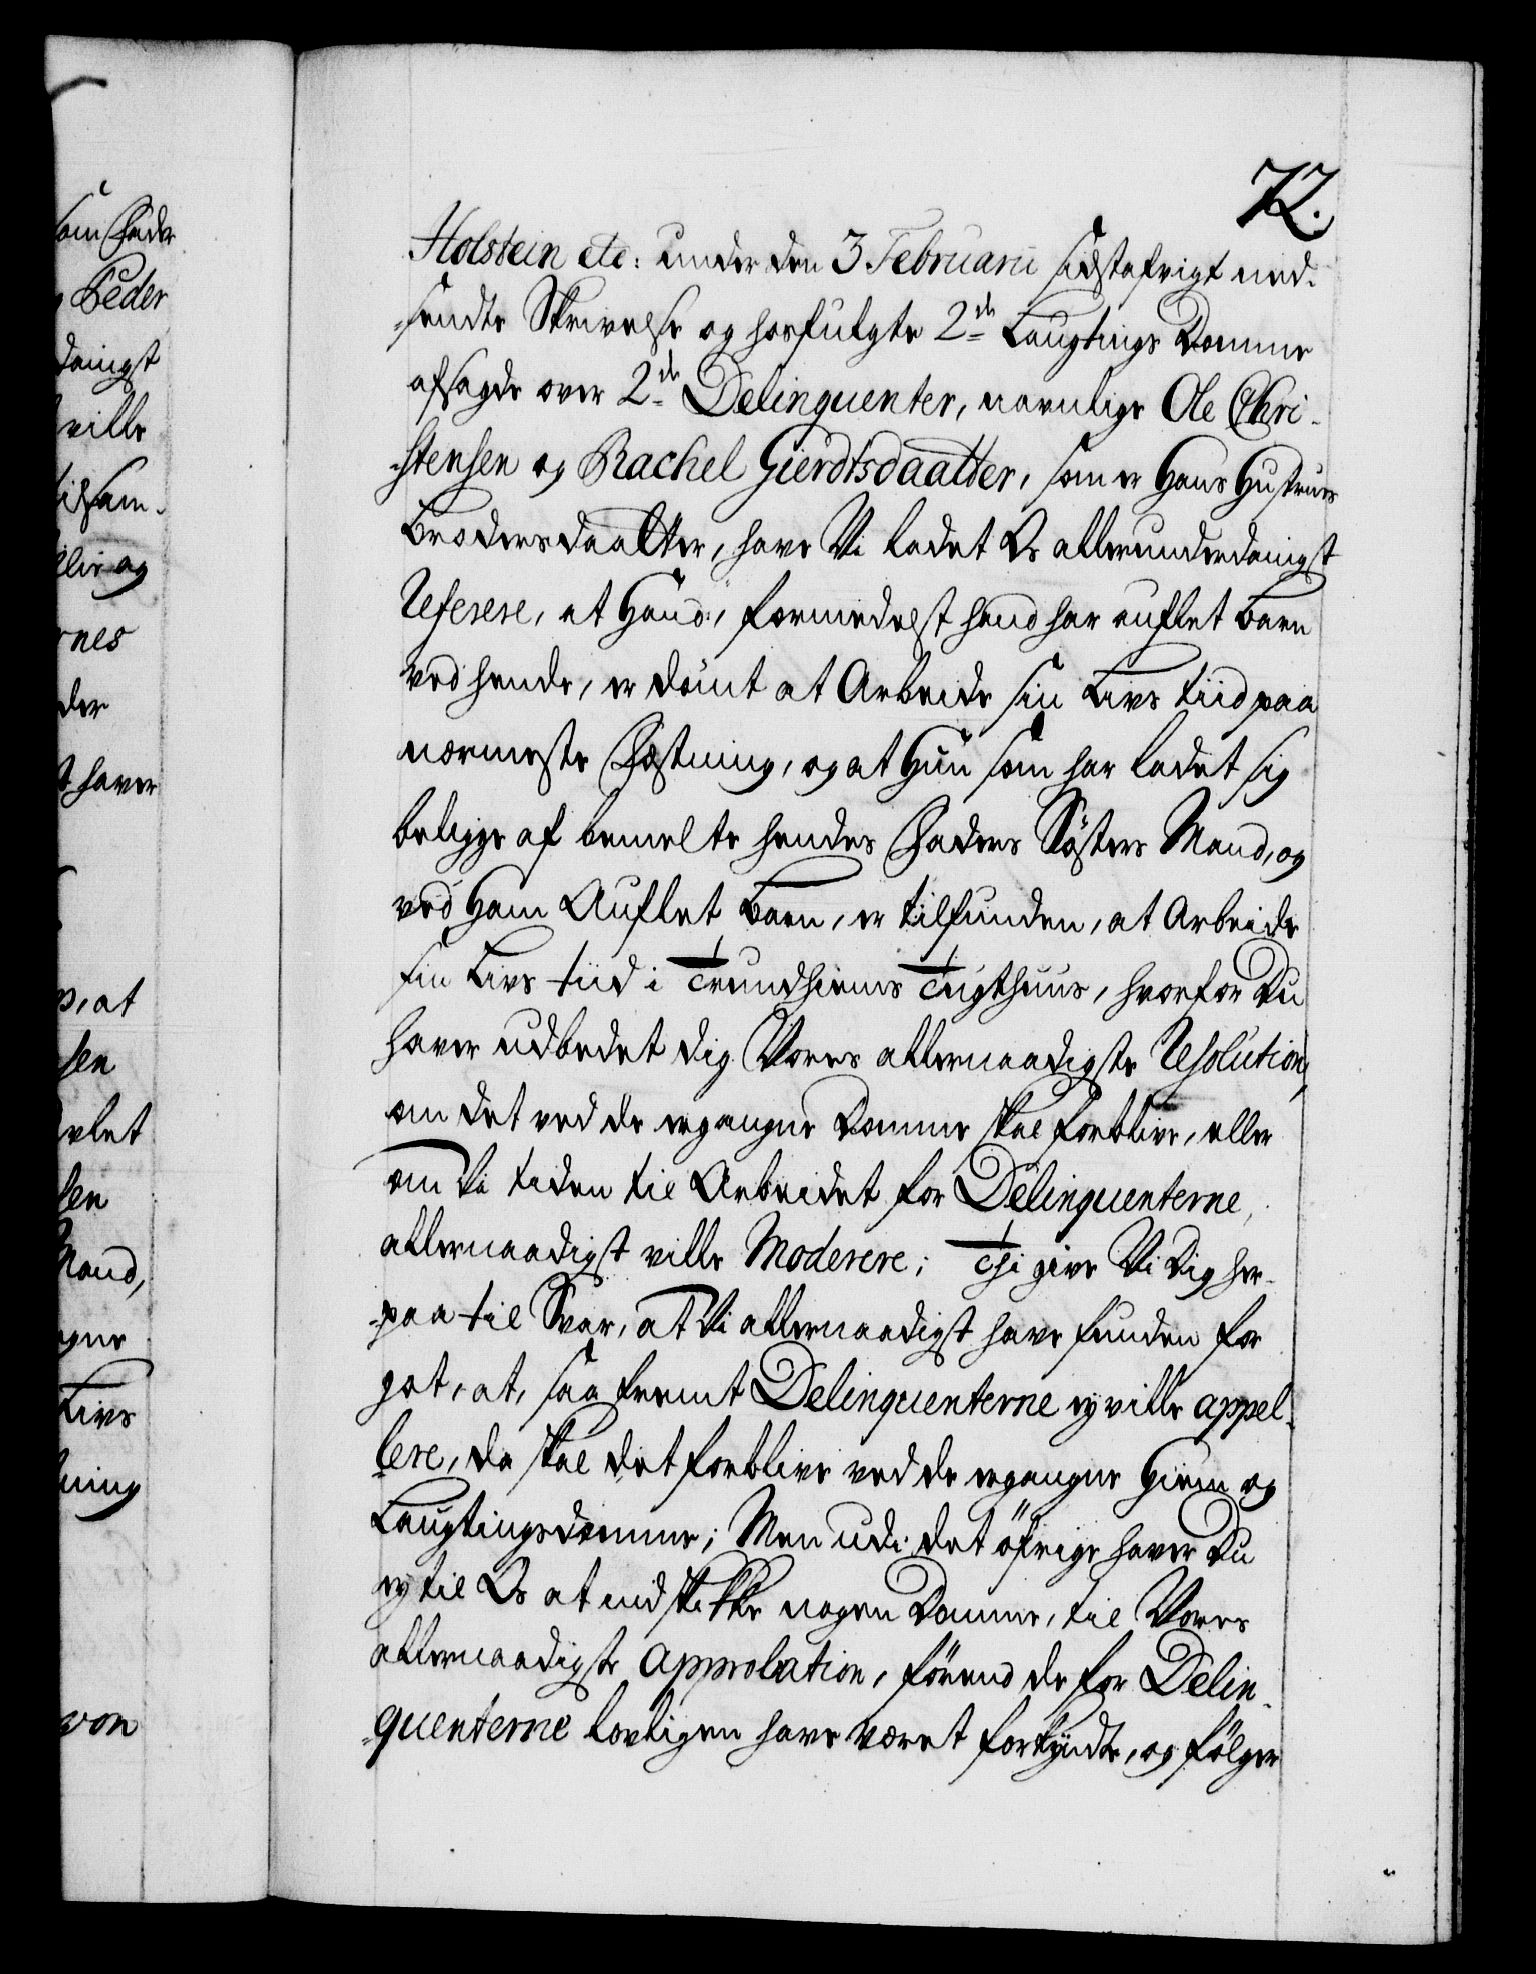 72.
Holstein etc: under den 3 Februarii sidstafvigt ned-
-sendte Skrivelse og hosfulgte 2de Laugtings Domme
afsagde over 2de Delinquenter, navnlige Ole Chri-
-stensen og Rachel Gierdtsdaatter, som er Hans Hustrues
Brodersdaatter, have Vi ladet Os allerunderdanigst
Referere, at Hand, formedelst hand har auflet Barn
ved hende, er dömt at Arbeide sin Livs tiid paa
nærmeste Fæstning, og at Hun som har ladet sig
beligge af bemelte hendes Faders Sösters Mand, og
ved Ham Auflet Barn, er tilfunden, at Arbeide
sin Livs tiid i Trundhiems Tugthuus, hvorfor Du
haver udbedet dig Vores allernaadigste Resolution,
om det ved de ergangne Domme skal forblive, eller
om Vi tiden til Arbeidet for Delinquenterne,
allernaadigst ville Moderere; Thi give Vi Dig her-
-paa til Svar, at Vi allernaadigst have funden for
got, at, saa fremt Delinquenterne ey ville appel-
lere, da skal det forblive ved de ergangne Hiem og
Laugtingsdomme; Men udi det öfrige haver Du
ey til Os at indskikke nogen Domme, til Vores
allernaadigste Approbation, förend de for Delin-
-quenterne lovligen have været forkyndte, og fölger
som Fader
Peder
danigst
ville
tilsam-
og
rnes
der
haver
at
sen
vlet
sen
Mand,
gne
Livs
tning
von